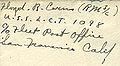 Lloyd. R. Cavins (RM2/c)
U.S.S. L.C.T. 1098
c/o Fleet Post Office
San Francisco Calif